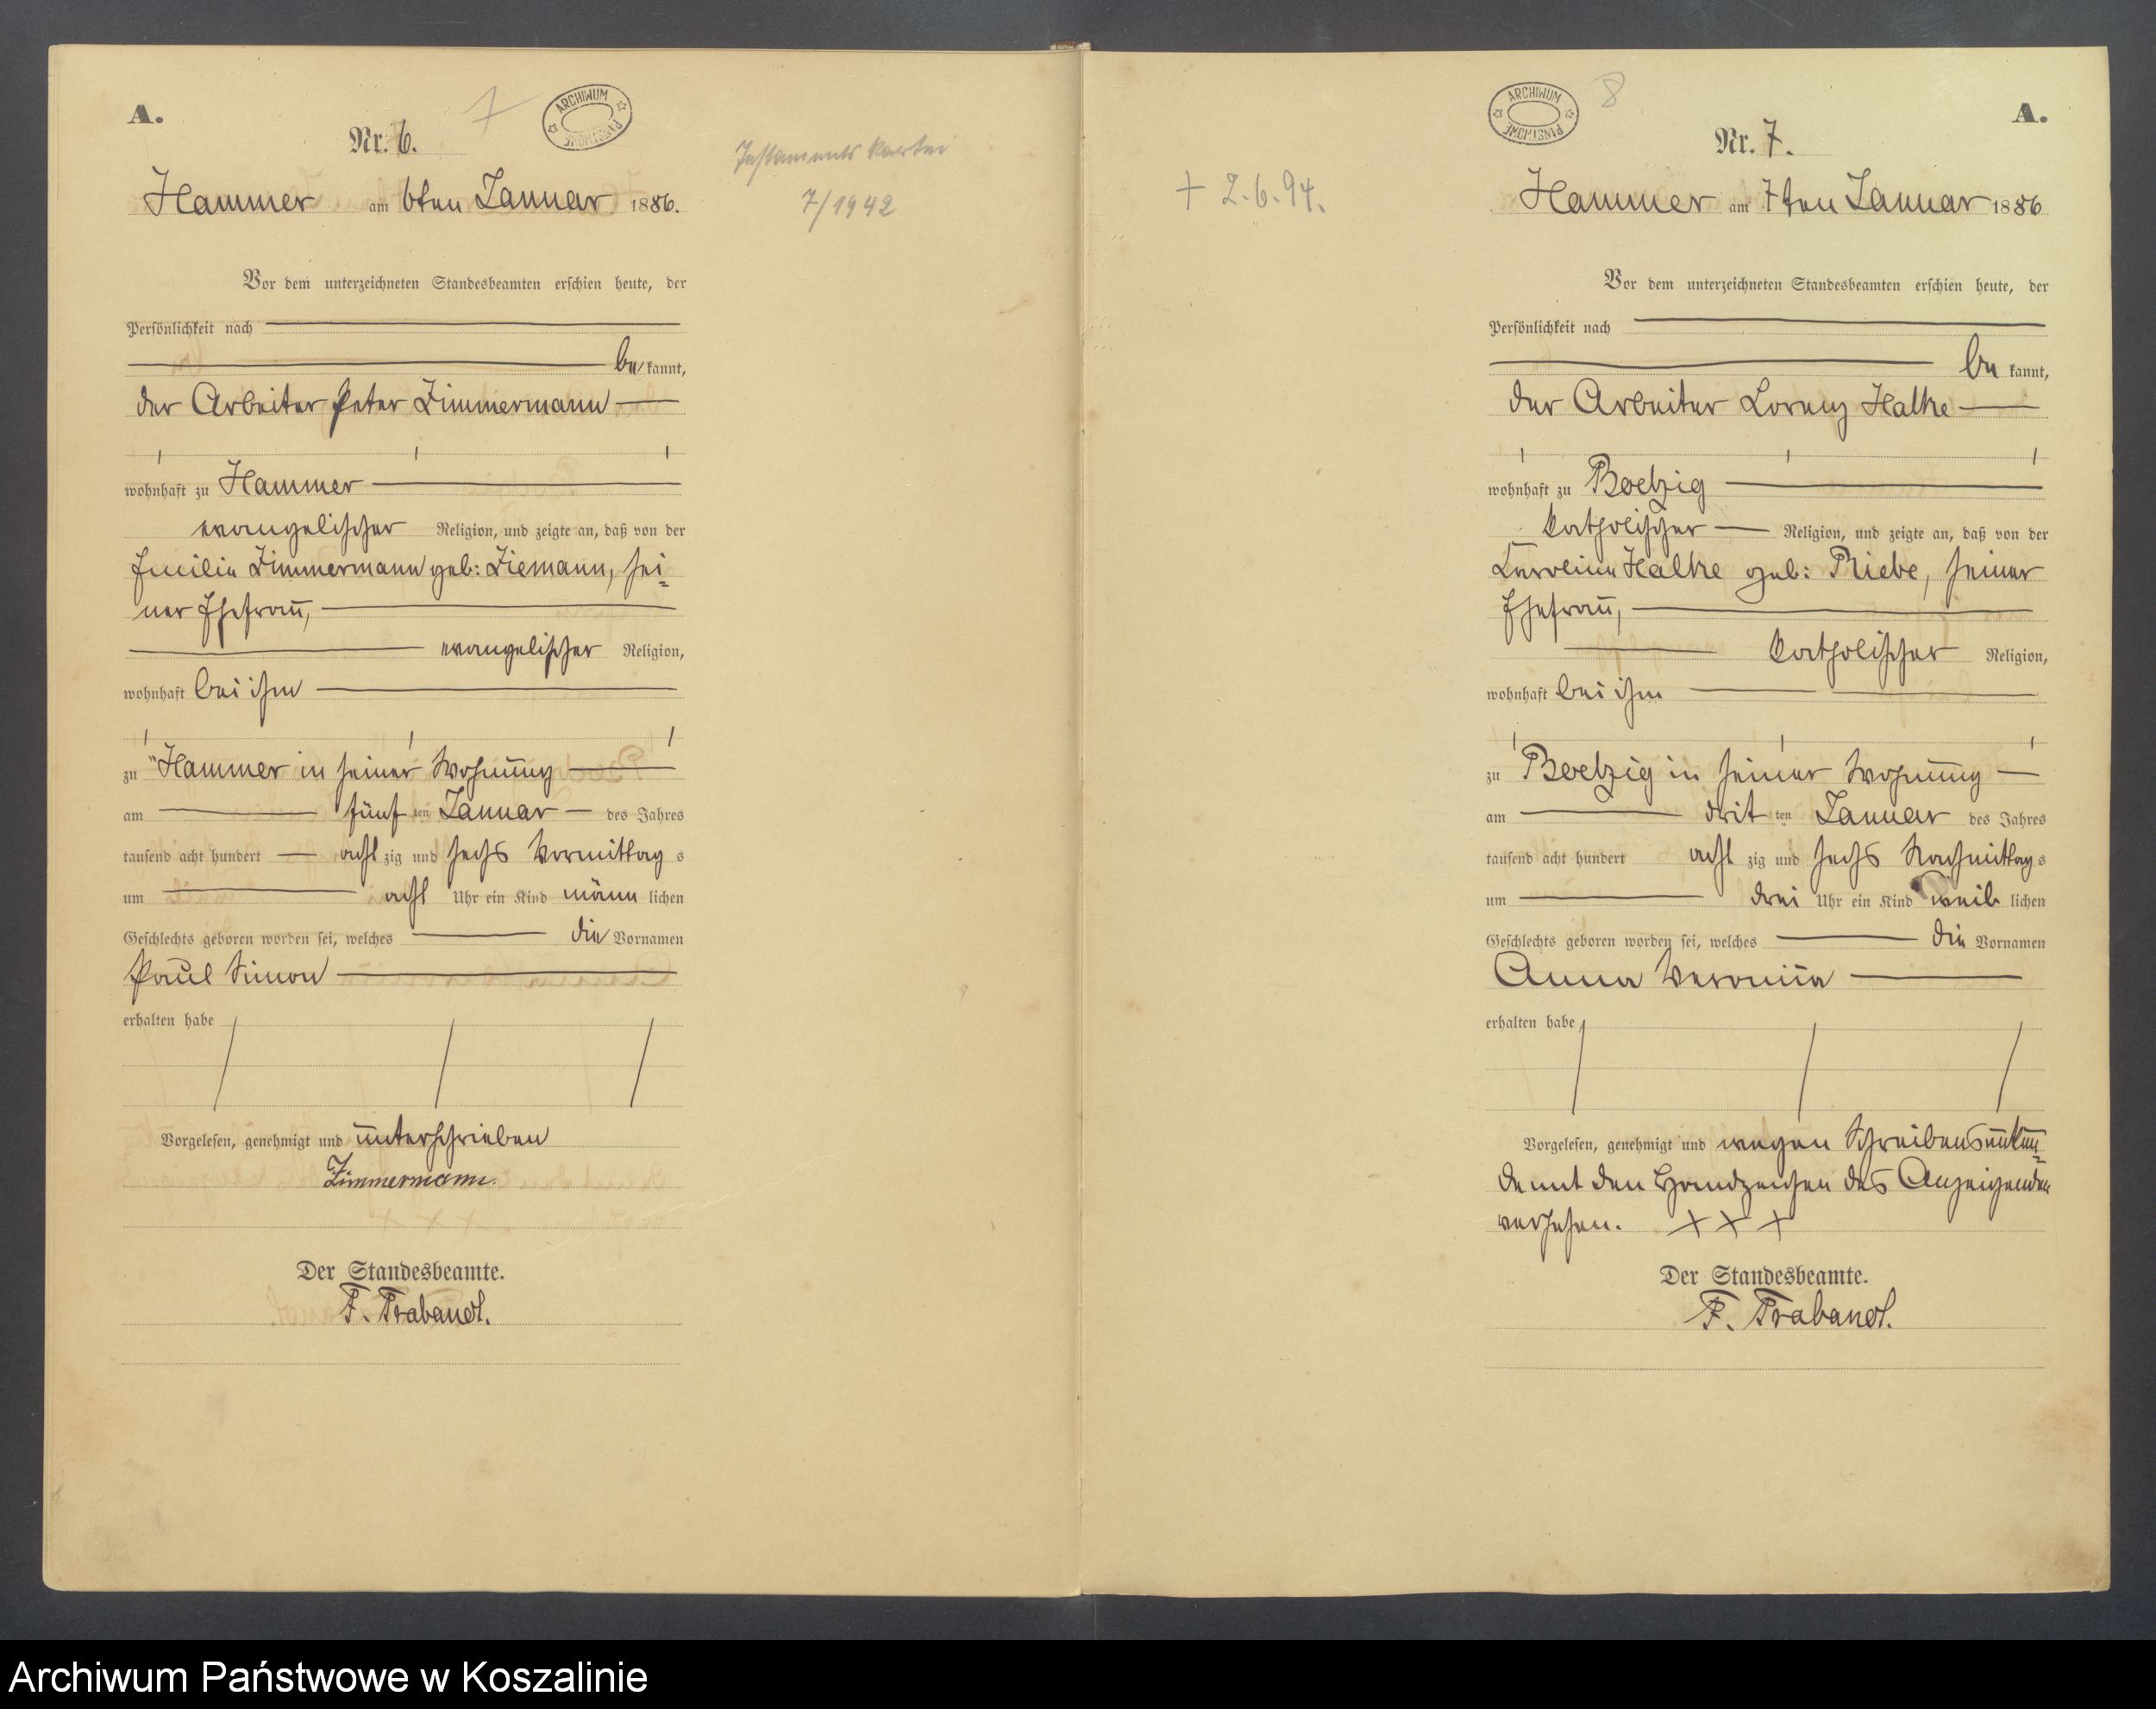 A.
7
ARCHIWUM PAŃSTWOWE
Nr. 6.
Testaments Kartei
7/1942
Hammer am 6ten Januar 1886.
Vor dem unterzeichneten Standesbeamten erschien heute, der
Persönlichkeit nach
be kannt,
der Arbeiter Peter Zimmermann
wohnhaft zu Hammer
evangelischer Religion, und zeigte an, daß von der
Emilie Zimmermann geb: Ziemann, sei=
ner Ehefrau,
evangelischer Religion,
wohnhaft bei ihm
zu Hammer in seiner Wohnung
am fünf ten Januar des Jahres
tausend acht hundert acht zig und sechs Vormittag s
um acht Uhr ein Kind männ lichen
Geschlechts geboren worden sei, welches die Vornamen
Paul Simon
erhalten habe
Vorgelesen, genehmigt und unterschrieben
Zimmermann.
Der Standesbeamte.
F. Trabandt.
ARCHIWUM PAŃSTWOWE
8
A.
Nr. 7.
+ 2.6.94.
Hammer am 7ten Januar 1886
Vor dem unterzeichneten Standesbeamten erschien heute, der
Persönlichkeit nach
be kannt,
der Arbeiter Lorenz Halke
wohnhaft zu Boetzig
katholischer Religion, und zeigte an, daß von der
Caroline Halke geb: Riebe, seiner
Ehefrau,
katholischer Religion,
wohnhaft bei ihm
zu Boetzig in seiner Wohnung
am drit ten Januar des Jahres
tausend acht hundert acht zig und sechs Nachmittag s
um drei Uhr ein Kind weib lichen
Geschlechts geboren worden sei, welches die Vornamen
Anna Veronica
erhalten habe
Vorgelesen, genehmigt und wegen Schreibensunkun=
de mit den Handzeichen des Anzeigenden
versehen. + + +
Der Standesbeamte.
F. Trabandt.
Archiwum Państwowe w Koszalinie